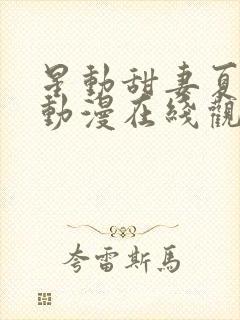 星動甜妻夏
動漫在綫觀
夸雷斯馬